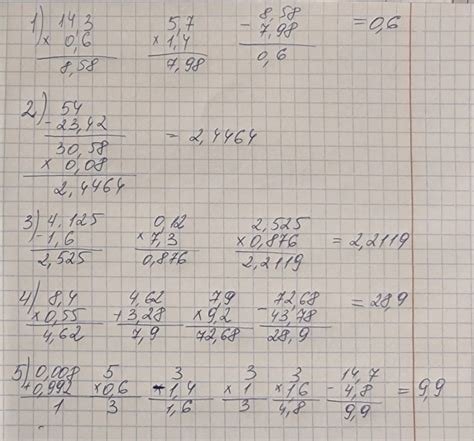 1) 14,3 5,7 8,58 = 0,6
× 0,6 × 1,4 - 7,98
8,58 7,98 0,6
2) 54
- 23,42 = 2,4464
30,58
× 0,08
2,4464
3) 4,125 0,12 2,525
- 1,6 × 7,3 × 0,876 = 2,2119
2,525 0,876 2,2119
4) 8,4 4,62 7,9 72,68 = 28,9
× 0,55 + 3,28 × 9,2 - 43,78
4,62 7,9 72,68 28,9
5) 0,008 5 3 3 3 14,7
+ 0,992 × 0,6 - 1,4 × 1 × 1,6 - 4,8 = 9,9
1 3 1,6 3 4,8 9,9